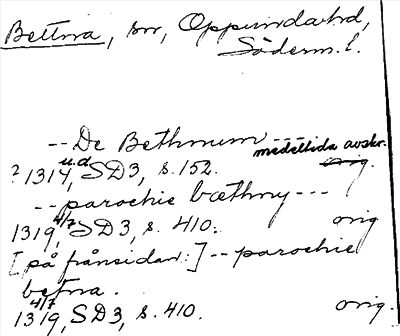 Bettna, sn, Oppundahd,
Söderm. l.
--De Bethnum---
medeltida avskr.
? 1314 u.d., SD3, s. 152. orig.
--parochie bœthny---
1319 4/7, SD3, s. 410. orig
[på frånsidan:]--parochie
betna.
1319 4/7, SD3, s. 410. orig.